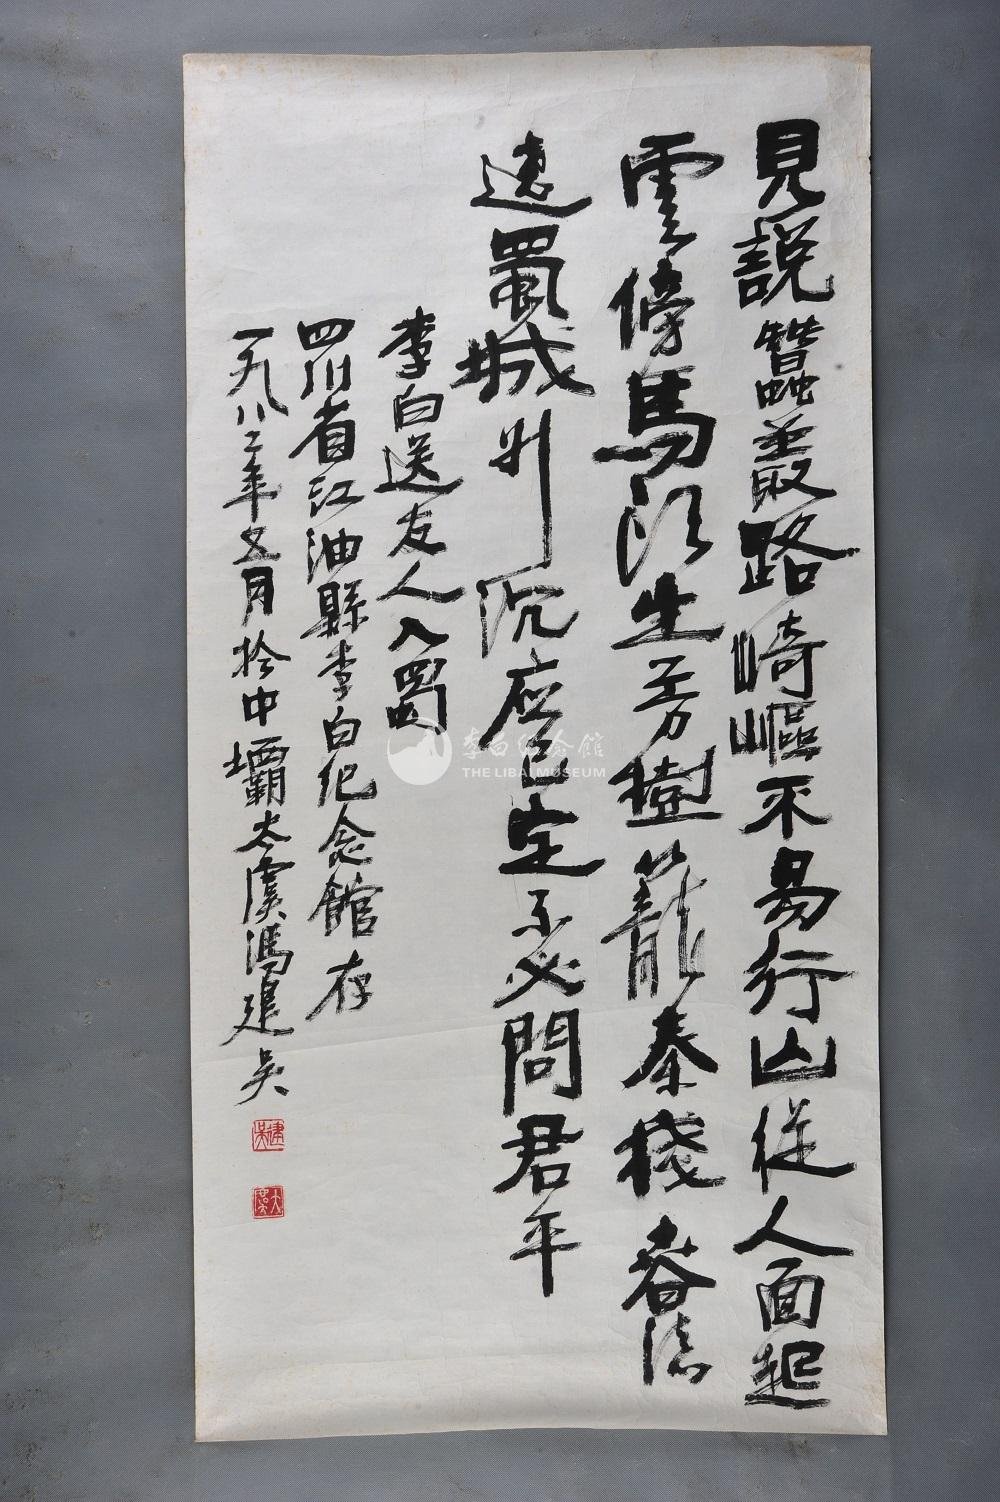 見説蠶叢路崎嶇不易行山從人面起
雲傍馬頭生芳樹籠秦棧春流
遶蜀城升沉應已定不必問君平
李白送友人入蜀
四川省江油縣李白纪念館存
一九八二年五月於中壩太虞馮建吴
建吴
太虞
李白纪念館
THE LIBAI MUSEUM